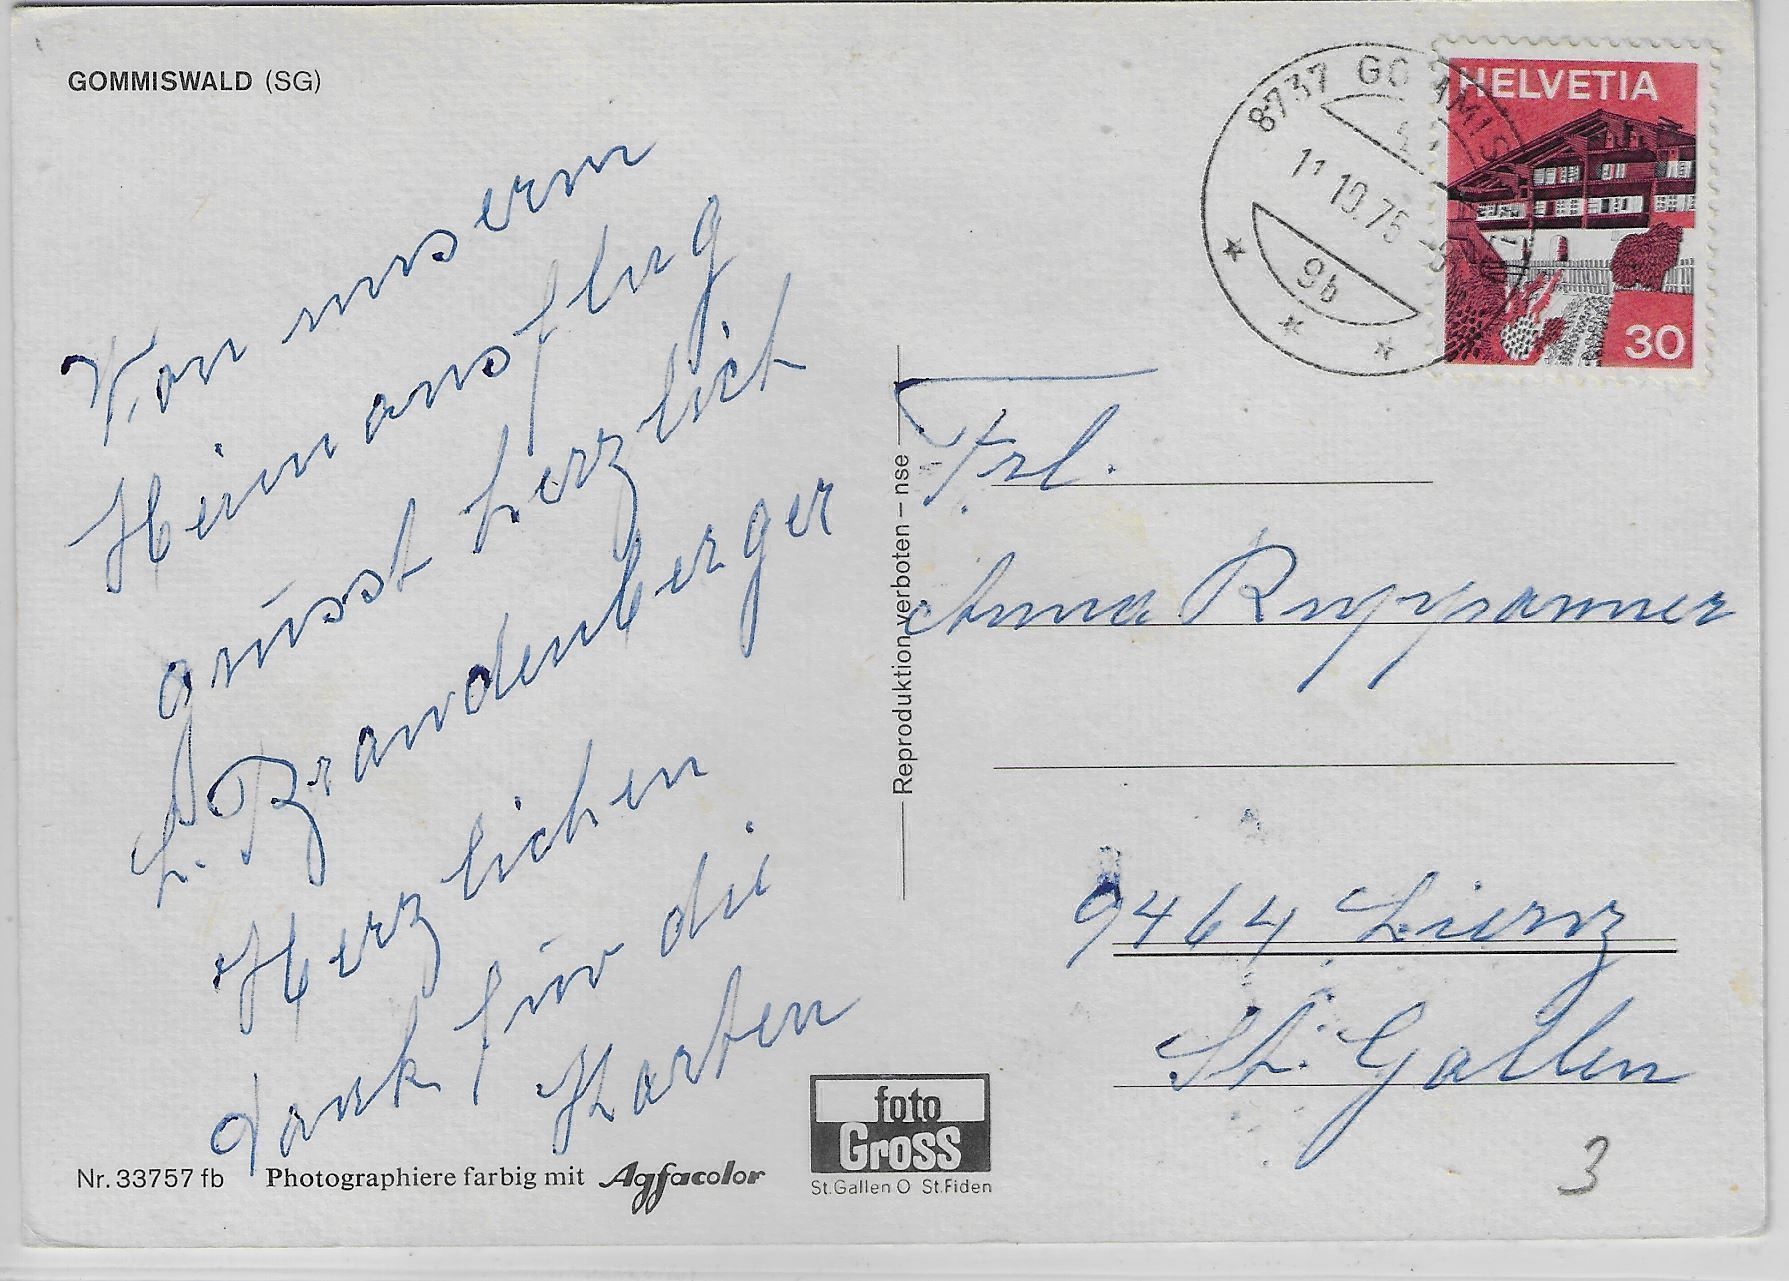 GOMMISWALD (SG)
Von unserm
Heimausflug
grüsst herzlich
L. Brandenberger
Herzlichen
Dank für die
Karten
Nr. 33757 fb Photographiere farbig mit Agfacolor
foto
Gross
St.Gallen O St.Fiden
Reproduktion verboten – nse
HELVETIA
30
8737 GOMMISWALD
11.10.75
9b
Frl.
Anna Ruppanner
9464 Lienz
St. Gallen
3